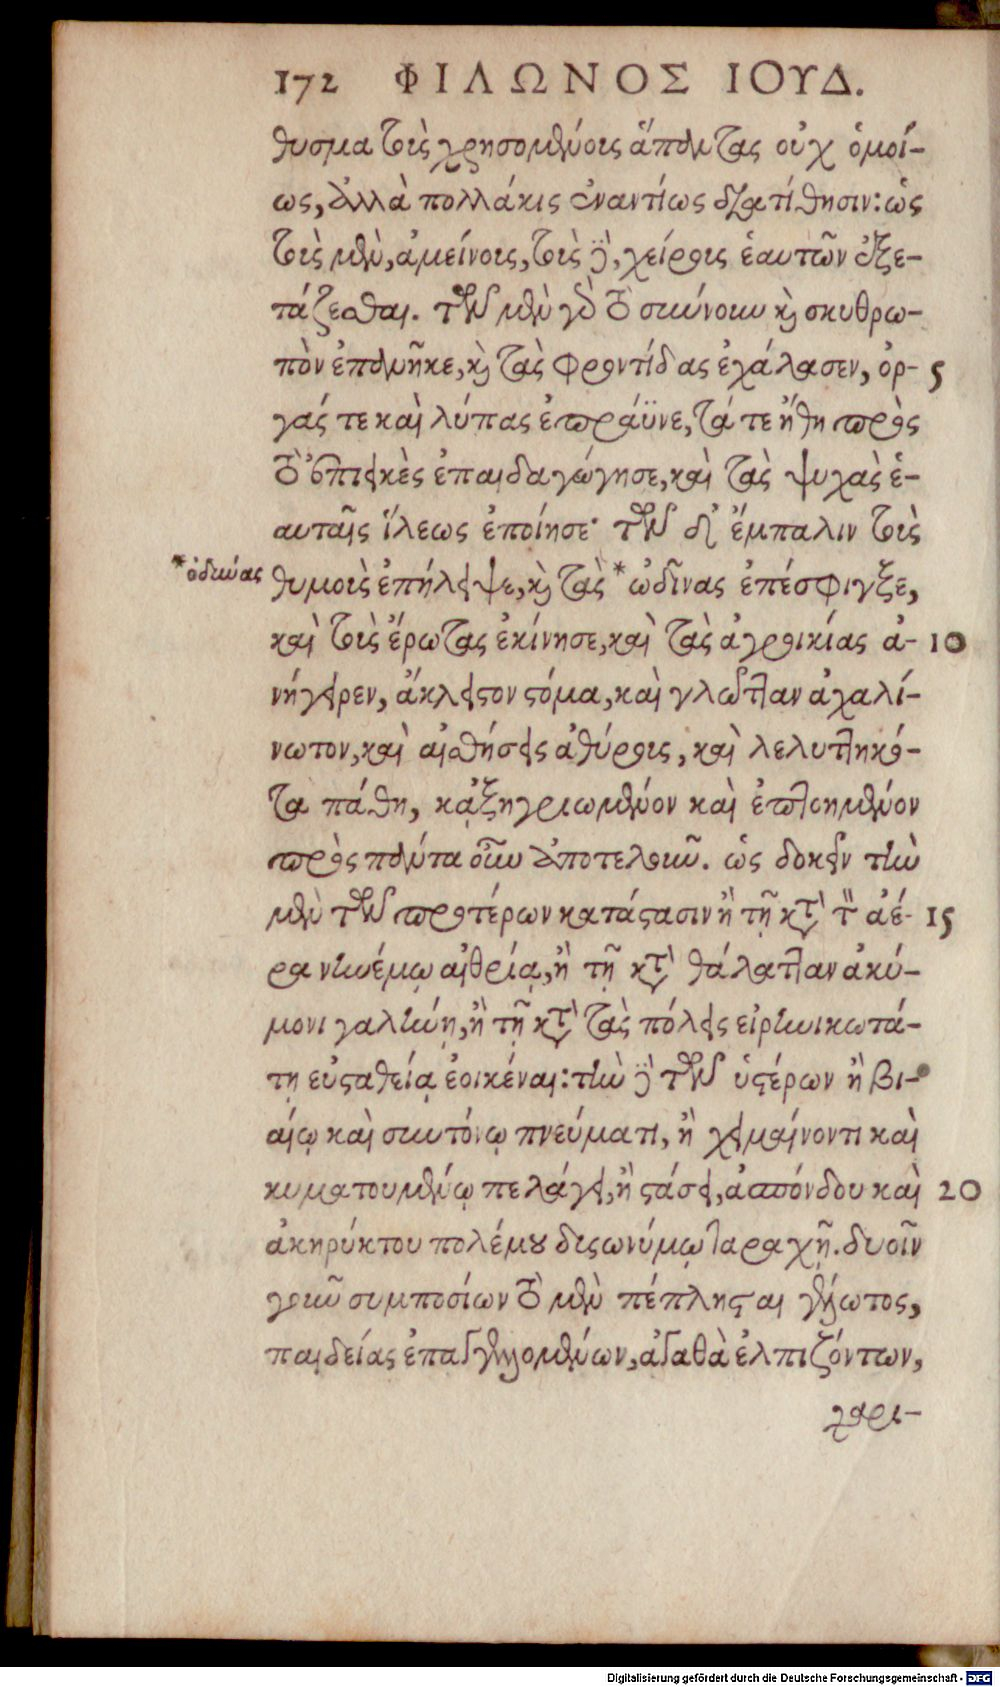 172 ΦΙΛΩΝΟΣ ΙΟΥΔ.
θυσμα τοὺς χρησομένους ἅπαντας οὐχ ὁμοί-
ως, ἀλλὰ πολλάκις ἐναντίως διατίθησιν: ὡς
τοὺς μὲν, ἀμείνους, τοὺς δὲ, χείρους ἑαυτῶν ἐξε-
τάζεσθαι. τῶν μὲν γὰρ τὸ σύννουν καὶ σκυθρω-
πὸν ἐπανῆκε, καὶ τὰς φροντίδας ἐχάλασεν, ὀρ- 5
γάς τε καὶ λύπας ἐπράϋνε, τά τε ἤθη πρὸς
τὸ ἐπιεικὲς ἐπαιδαγώγησε, καὶ τὰς ψυχὰς ἑ-
αυταῖς ἵλεως ἐποίησε· τῶν δ' ἔμπαλιν τοὺς
*ὀδύνας
θυμοὺς ἐπήλειψε, καὶ τὰς *ὠδῖνας ἐπέσφιγξε,
καὶ τοὺς ἔρωτας ἐκίνησε, καὶ τὰς ἀγροικίας ἀ- 10
νήγειρεν, ἄκλειστον στόμα, καὶ γλῶτταν ἀχαλί-
νωτον, καὶ αἰσθήσεις ἀθύρους, καὶ λελυττηκό-
τα πάθη, καὶ ἐξηγριωμένον καὶ ἐπτοημένον
πρὸς πάντα νοῦν ἀποτελοῦν. ὡς δοκεῖν τὴν
μὲν τῶν προτέρων κατάστασιν ἢ τῇ κατὰ τὸν ἀέ- 15
ρα νηνέμῳ αἰθρίᾳ, ἢ τῇ κατὰ θάλατταν ἀκύ-
μονι γαλήνῃ, ἢ τῇ κατὰ τὰς πόλεις εἰρηνικωτά-
τῃ εὐσταθείᾳ ἐοικέναι: τὴν δὲ τῶν ὑστέρων ἢ βι-
αίῳ καὶ συντόνῳ πνεύματι, ἢ χειμαίνοντι καὶ
κυματουμένῳ πελάγει, ἢ στάσει, ἀσπόνδου καὶ 20
ἀκηρύκτου πολέμου δυσωνύμῳ ταραχῇ. δυοῖν
γοῦν συμποσίων τὸ μὲν πέπλησται γέλωτος,
παιδείας ἐπαγγελλομένων, ἀγαθὰ ἐλπιζόντων,
χαρι-
Digitalisierung gefördert durch die Deutsche Forschungsgemeinschaft - DFG